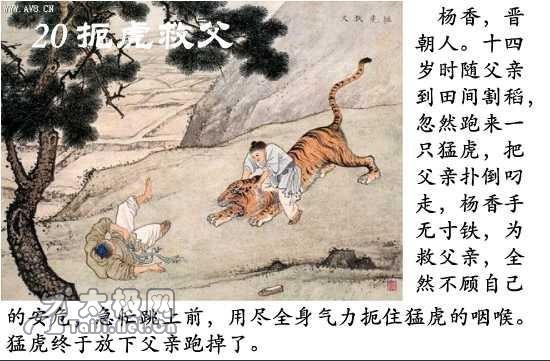 www.AV8.CN
20 扼虎救父
父救虎扼
杨香，晋
朝人。十四
岁时随父亲
到田间割稻，
忽然跑来一
只猛虎，把
父亲扑倒叼
走，杨香手
无寸铁，为
救父亲，全
然不顾自己
的安危，急忙跳上前，用尽全身气力扼住猛虎的咽喉。
猛虎终于放下父亲跑掉了。
太极网